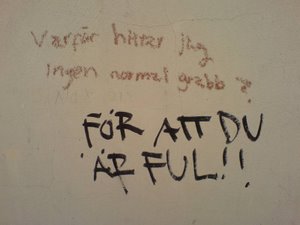 Varför hittar jag
ingen normal grabb?
FÖR ATT DU
ÄR FUL!!